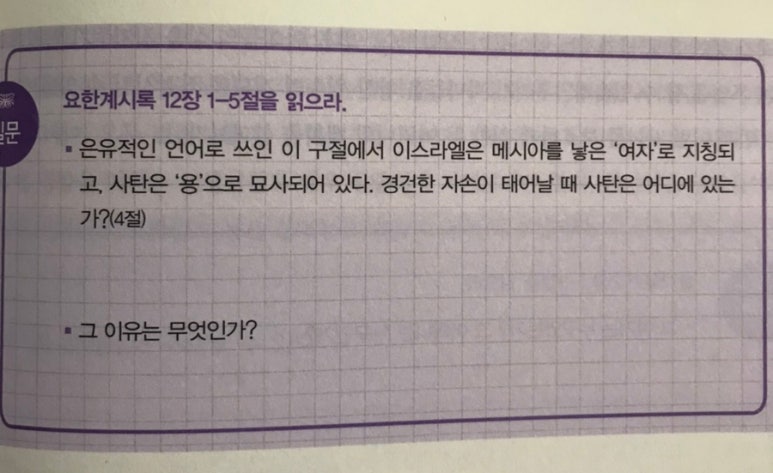 요한계시록 12장 1-5절을 읽으라.
▪ 은유적인 언어로 쓰인 이 구절에서 이스라엘은 메시아를 낳은 ‘여자’로 지칭되
고, 사탄은 ‘용’으로 묘사되어 있다. 경건한 자손이 태어날 때 사탄은 어디에 있는
가?(4절)
▪ 그 이유는 무엇인가?